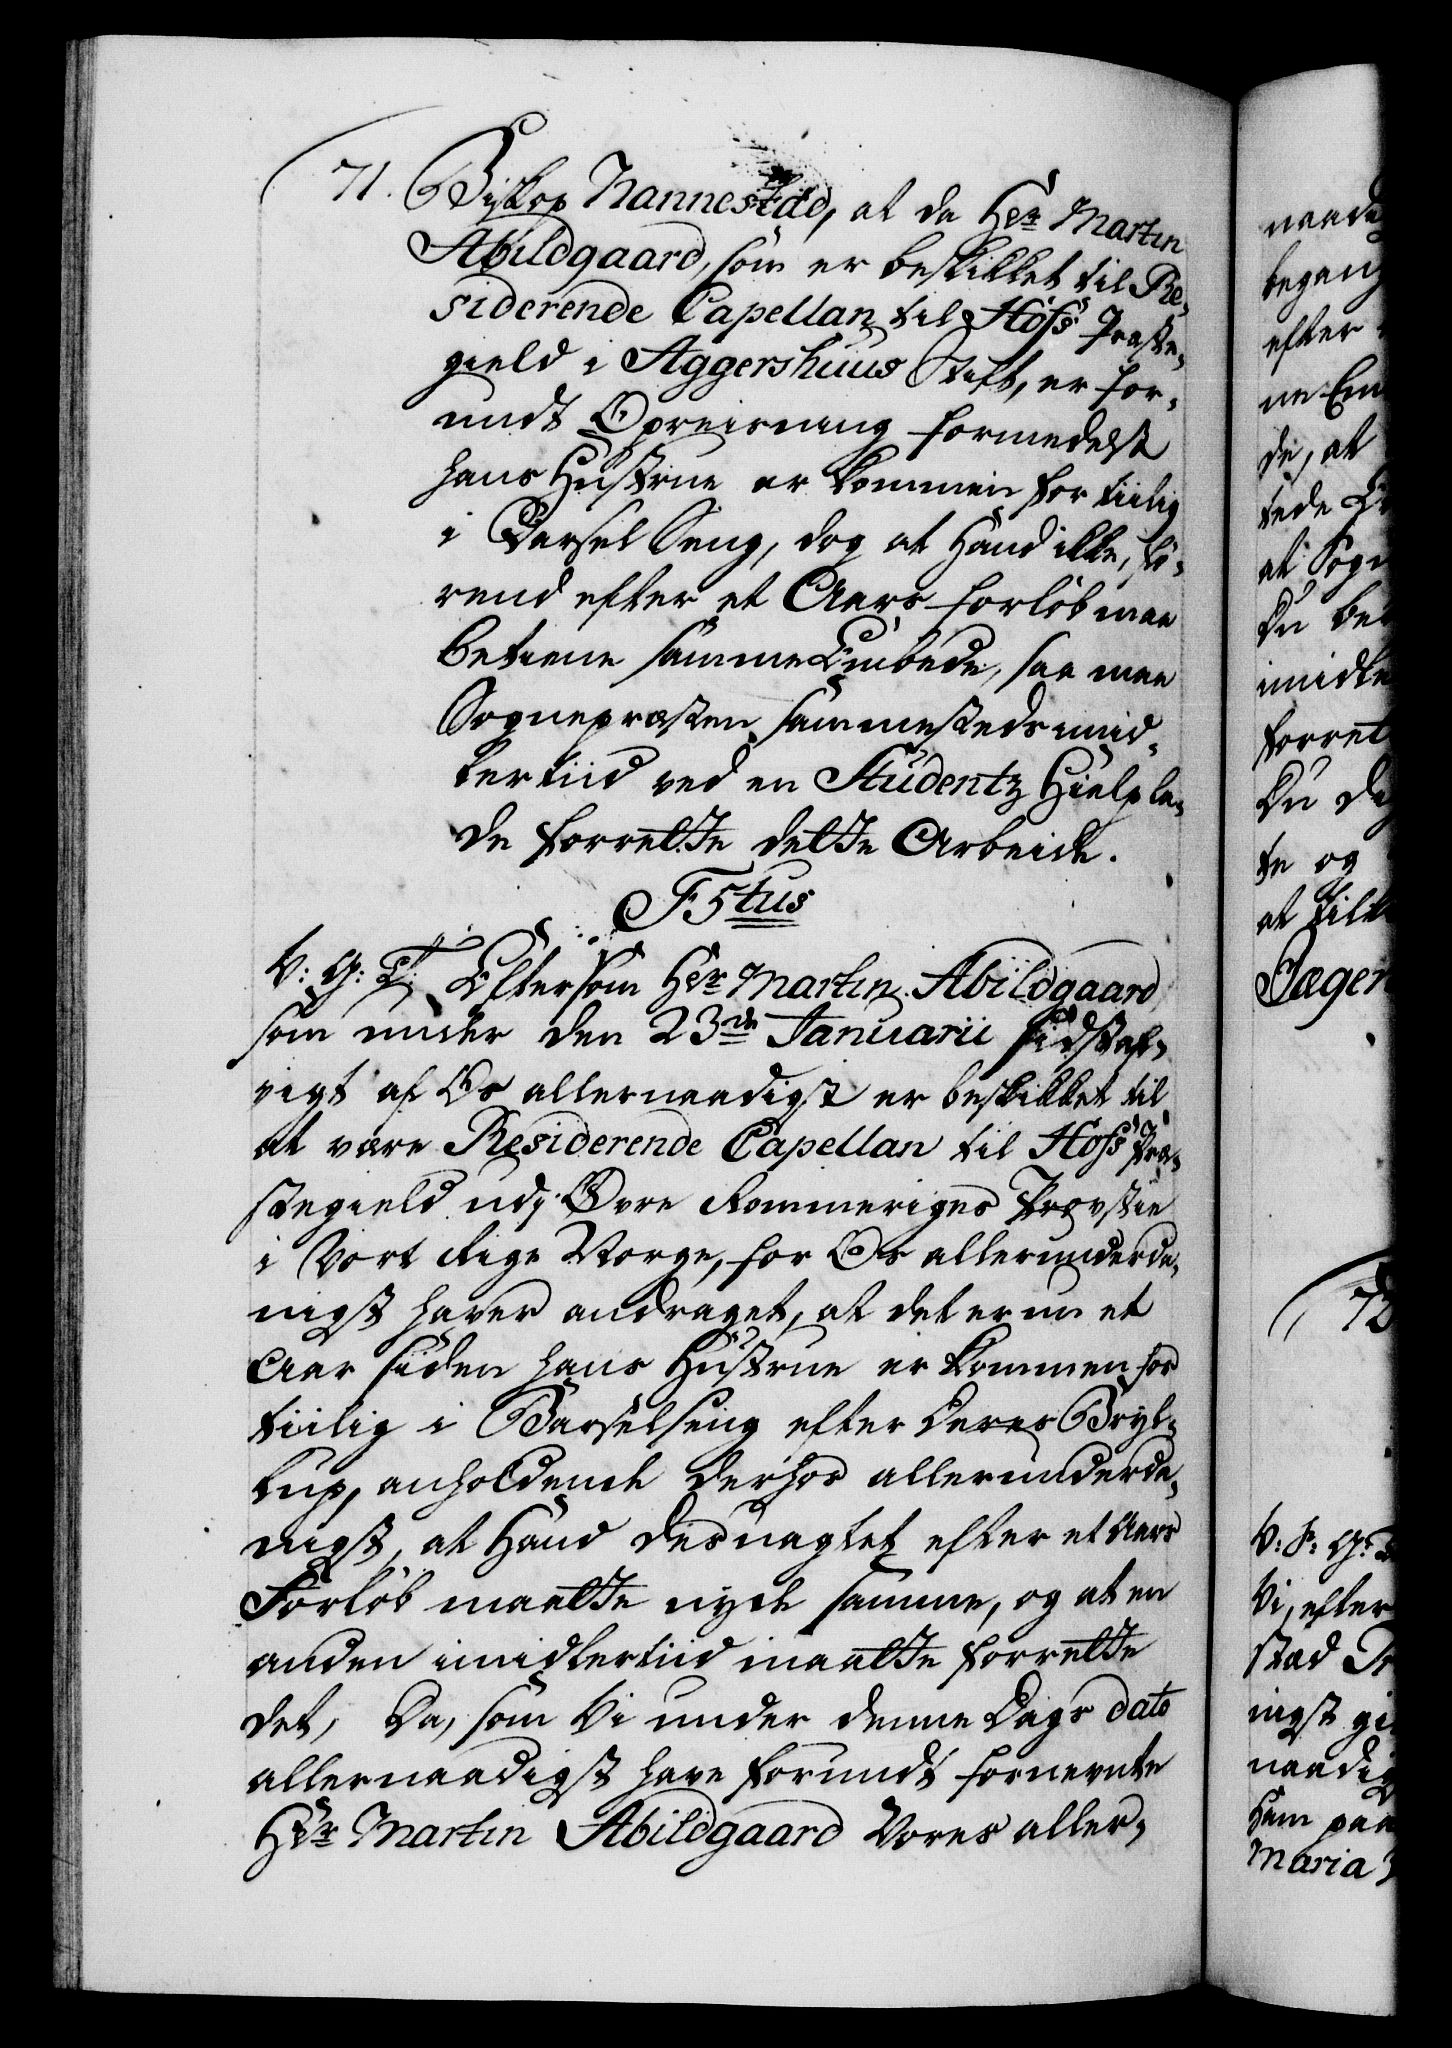 71. Biskop Nannestad, at da Hr Martin
Abildgaard, som er beskikket til Re-
siderende Capellan til Hofs Præste-
gield i Aggershuus Stift, er for-
undt Opreisning formedelst
hans Hustrue er kommen for tiilig
i Barsel Seng, dog at Hand ikke, fø-
rend efter et Aars forløb maa
betiene samme Embede, saa maa
Sognepræsten sammesteds imid-
lertiid ved en Studentz Hielp la-
de forrette dette Arbeide.
F 5tus
V: G: T: Eftersom Hr Martin Abildgaard
som under den 23de Januarii sidstaf-
vigt af Os allernaadigst er beskikket til
at være Residerende Capellan til Hofs Præ-
stegield udj Øvre Rommeriges Provstie
i Vort Rige Norge, for Os allerunderda-
nigst haver andraget, at det er nu et
Aar siden hans Hustrue er kommen for
tiilig i Barselseng efter deres Bryl-
lup, anholdende derhos allerunderda-
nigst, at Hand desuagtet efter et Aars
Forløb maatte nyde samme, og at en
anden imidlertiid maatte forrette
det, Da, som Vi under denne Dags dato
allernaadigst have forundt fornevnte
Hr Martin Abildgaard Vores aller-
naadi
begang
efter
de, at
at Sogn
Du be
imidle
forret
Du
te og
at tilk
Jæger
72
V: F: G:
Vi, efter
stad
nigst gi
naadig
Ham paa
Maria